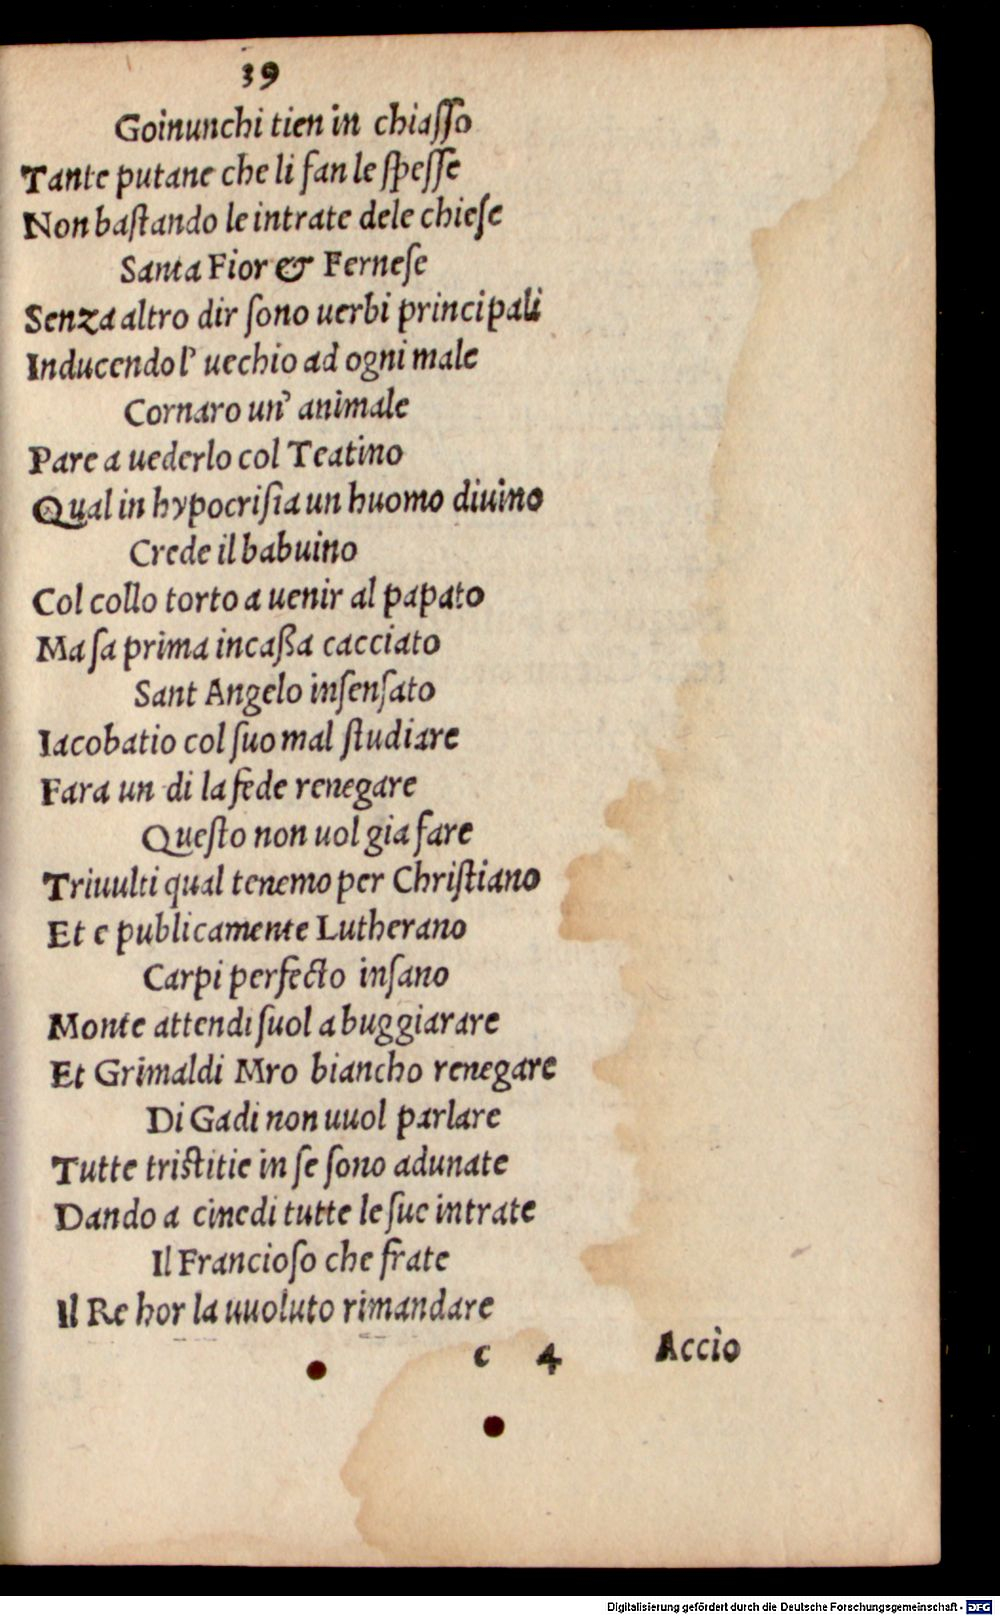 39
Goinunchi tien in chiaſſo
Tante putane che li fan le ſpeſſe
Non baſtando le intrate dele chieſe
Santa Fior & Ferneſe
Senza altro dir ſono uerbi principali
Inducendo l' uechio ad ogni male
Cornaro un' animale
Pare a uederlo col Teatino
Qual in hypocriſia un huomo diuino
Crede il babuino
Col collo torto a uenir al papato
Ma ſa prima incaßa cacciato
Sant Angelo inſenſato
Iacobatio col ſuo mal ſtudiare
Fara un di la fede renegare
Queſto non uol gia fare
Triuulti qual tenemo per Chriſtiano
Et e publicamente Lutherano
Carpi perfecto inſano
Monte attendi ſuol a buggiarare
Et Grimaldi Mro biancho renegare
Di Gadi non uuol parlare
Tutte triſtitie in ſe ſono adunate
Dando a cinedi tutte le ſue intrate
Il Francioſo che frate
Il Re hor la uuoluto rimandare
c 4 Accio
Digitalisierung gefördert durch die Deutsche Forschungsgemeinschaft - DFG